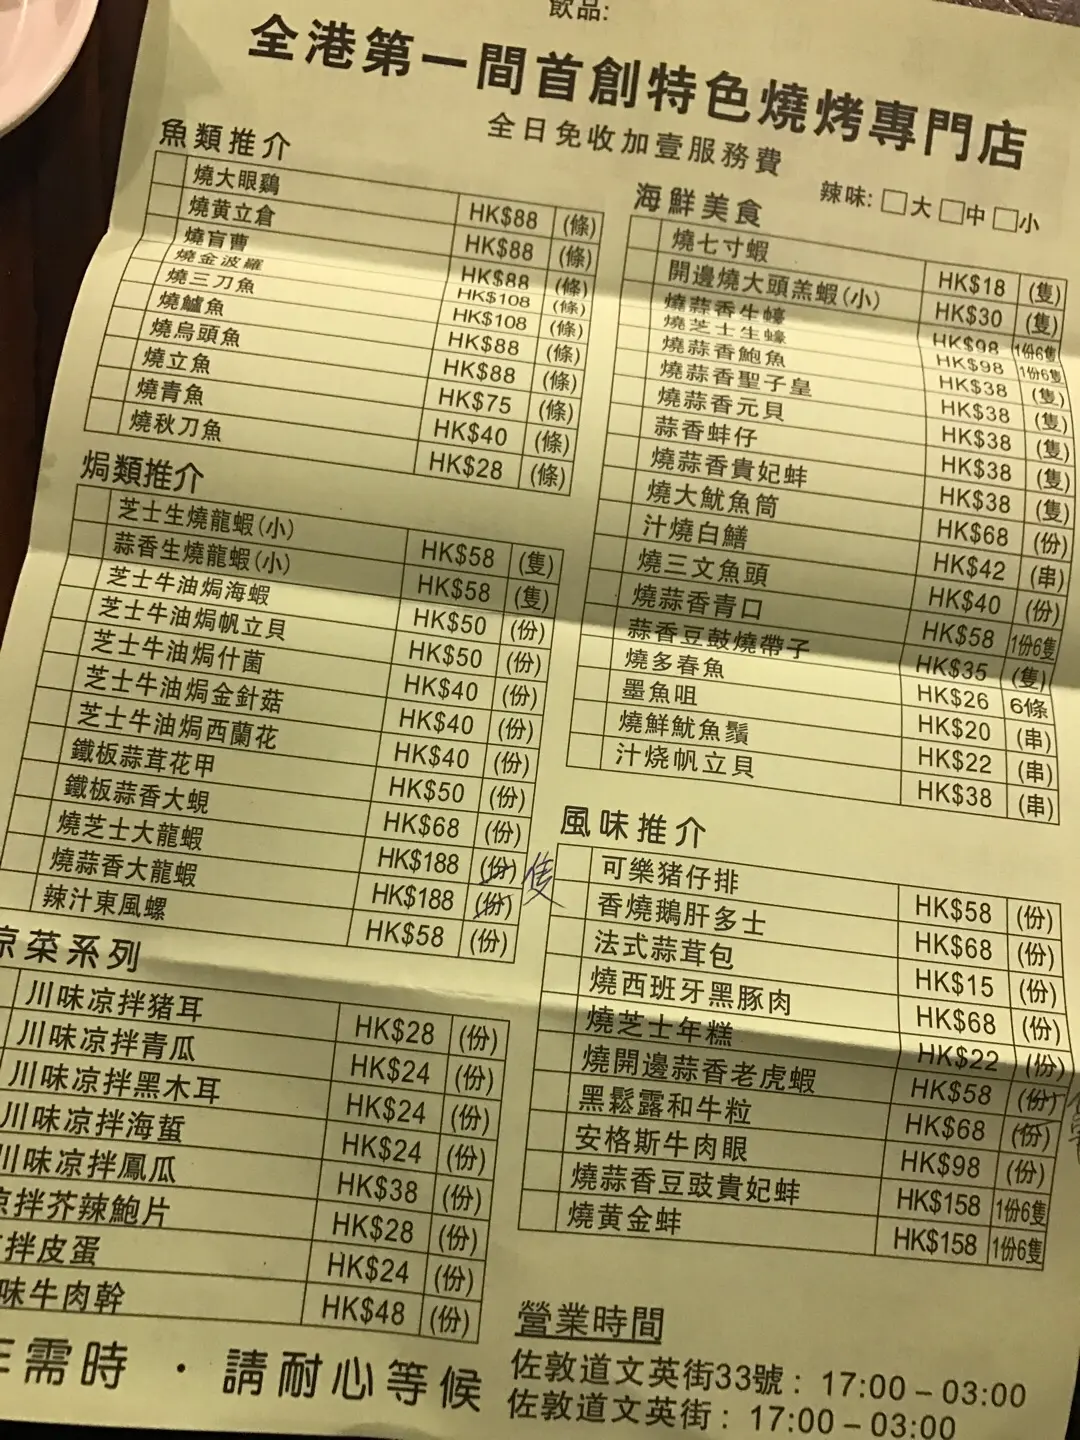 飲品:
全港第一間首創特色燒烤專門店
全日免收加壹服務費
辣味: □大 □中 □小
魚類推介
燒大眼鷄 HK$88 (條)
燒黄立倉 HK$88 (條)
燒盲曹 HK$88 (條)
燒金波羅 HK$108 (條)
燒三刀魚 HK$108 (條)
燒鱸魚 HK$88 (條)
燒烏頭魚 HK$88 (條)
燒立魚 HK$75 (條)
燒青魚 HK$40 (條)
燒秋刀魚 HK$28 (條)
焗類推介
芝士生燒龍蝦(小) HK$58 (隻)
蒜香生燒龍蝦(小) HK$58 (隻)
芝士牛油焗海蝦 HK$50 (份)
芝士牛油焗帆立貝 HK$50 (份)
芝士牛油焗什菌 HK$40 (份)
芝士牛油焗金針菇 HK$40 (份)
芝士牛油焗西蘭花 HK$40 (份)
鐵板蒜茸花甲 HK$50 (份)
鐵板蒜香大蜆 HK$68 (份)
燒芝士大龍蝦 HK$188 (份) 隻
燒蒜香大龍蝦 HK$188 (份)
辣汁東風螺 HK$58 (份)
凉菜系列
川味凉拌猪耳 HK$28 (份)
川味凉拌青瓜 HK$24 (份)
川味凉拌黑木耳 HK$24 (份)
川味凉拌海蜇 HK$24 (份)
川味凉拌鳳瓜 HK$38 (份)
凉拌芥辣鮑片 HK$28 (份)
拌皮蛋 HK$24 (份)
味牛肉幹 HK$48 (份)
需時 · 請耐心等候
海鮮美食
燒七寸蝦 HK$18 (隻)
開邊燒大頭羔蝦(小) HK$30 (隻)
燒蒜香生蠔 HK$98 1份6隻
燒芝士生蠔 HK$98 1份6隻
燒蒜香鮑魚 HK$38 (隻)
燒蒜香聖子皇 HK$38 (隻)
燒蒜香元貝 HK$38 (隻)
蒜香蚌仔 HK$38 (隻)
燒蒜香貴妃蚌 HK$38 (隻)
燒大魷魚筒 HK$68 (份)
汁燒白鱔 HK$42 (串)
燒三文魚頭 HK$40 (份)
燒蒜香青口 HK$58 1份6隻
蒜香豆鼓燒帶子 HK$35 (隻)
燒多春魚 HK$26 6條
墨魚咀 HK$20 (串)
燒鮮魷魚鬚 HK$22 (串)
汁烧帆立貝 HK$38 (串)
風味推介
可樂猪仔排 HK$58 (份)
香燒鵝肝多士 HK$68 (份)
法式蒜茸包 HK$15 (份)
燒西班牙黑豚肉 HK$68 (份)
燒芝士年糕 HK$22 (份)
燒開邊蒜香老虎蝦 HK$58 (份)
黑鬆露和牛粒 HK$68 (份)
安格斯牛肉眼 HK$98 (份)
燒蒜香豆豉貴妃蚌 HK$158 1份6隻
燒黄金蚌 HK$158 1份6隻
營業時間
佐敦道文英街33號 : 17:00 – 03:00
佐敦道文英街 : 17:00 – 03:00